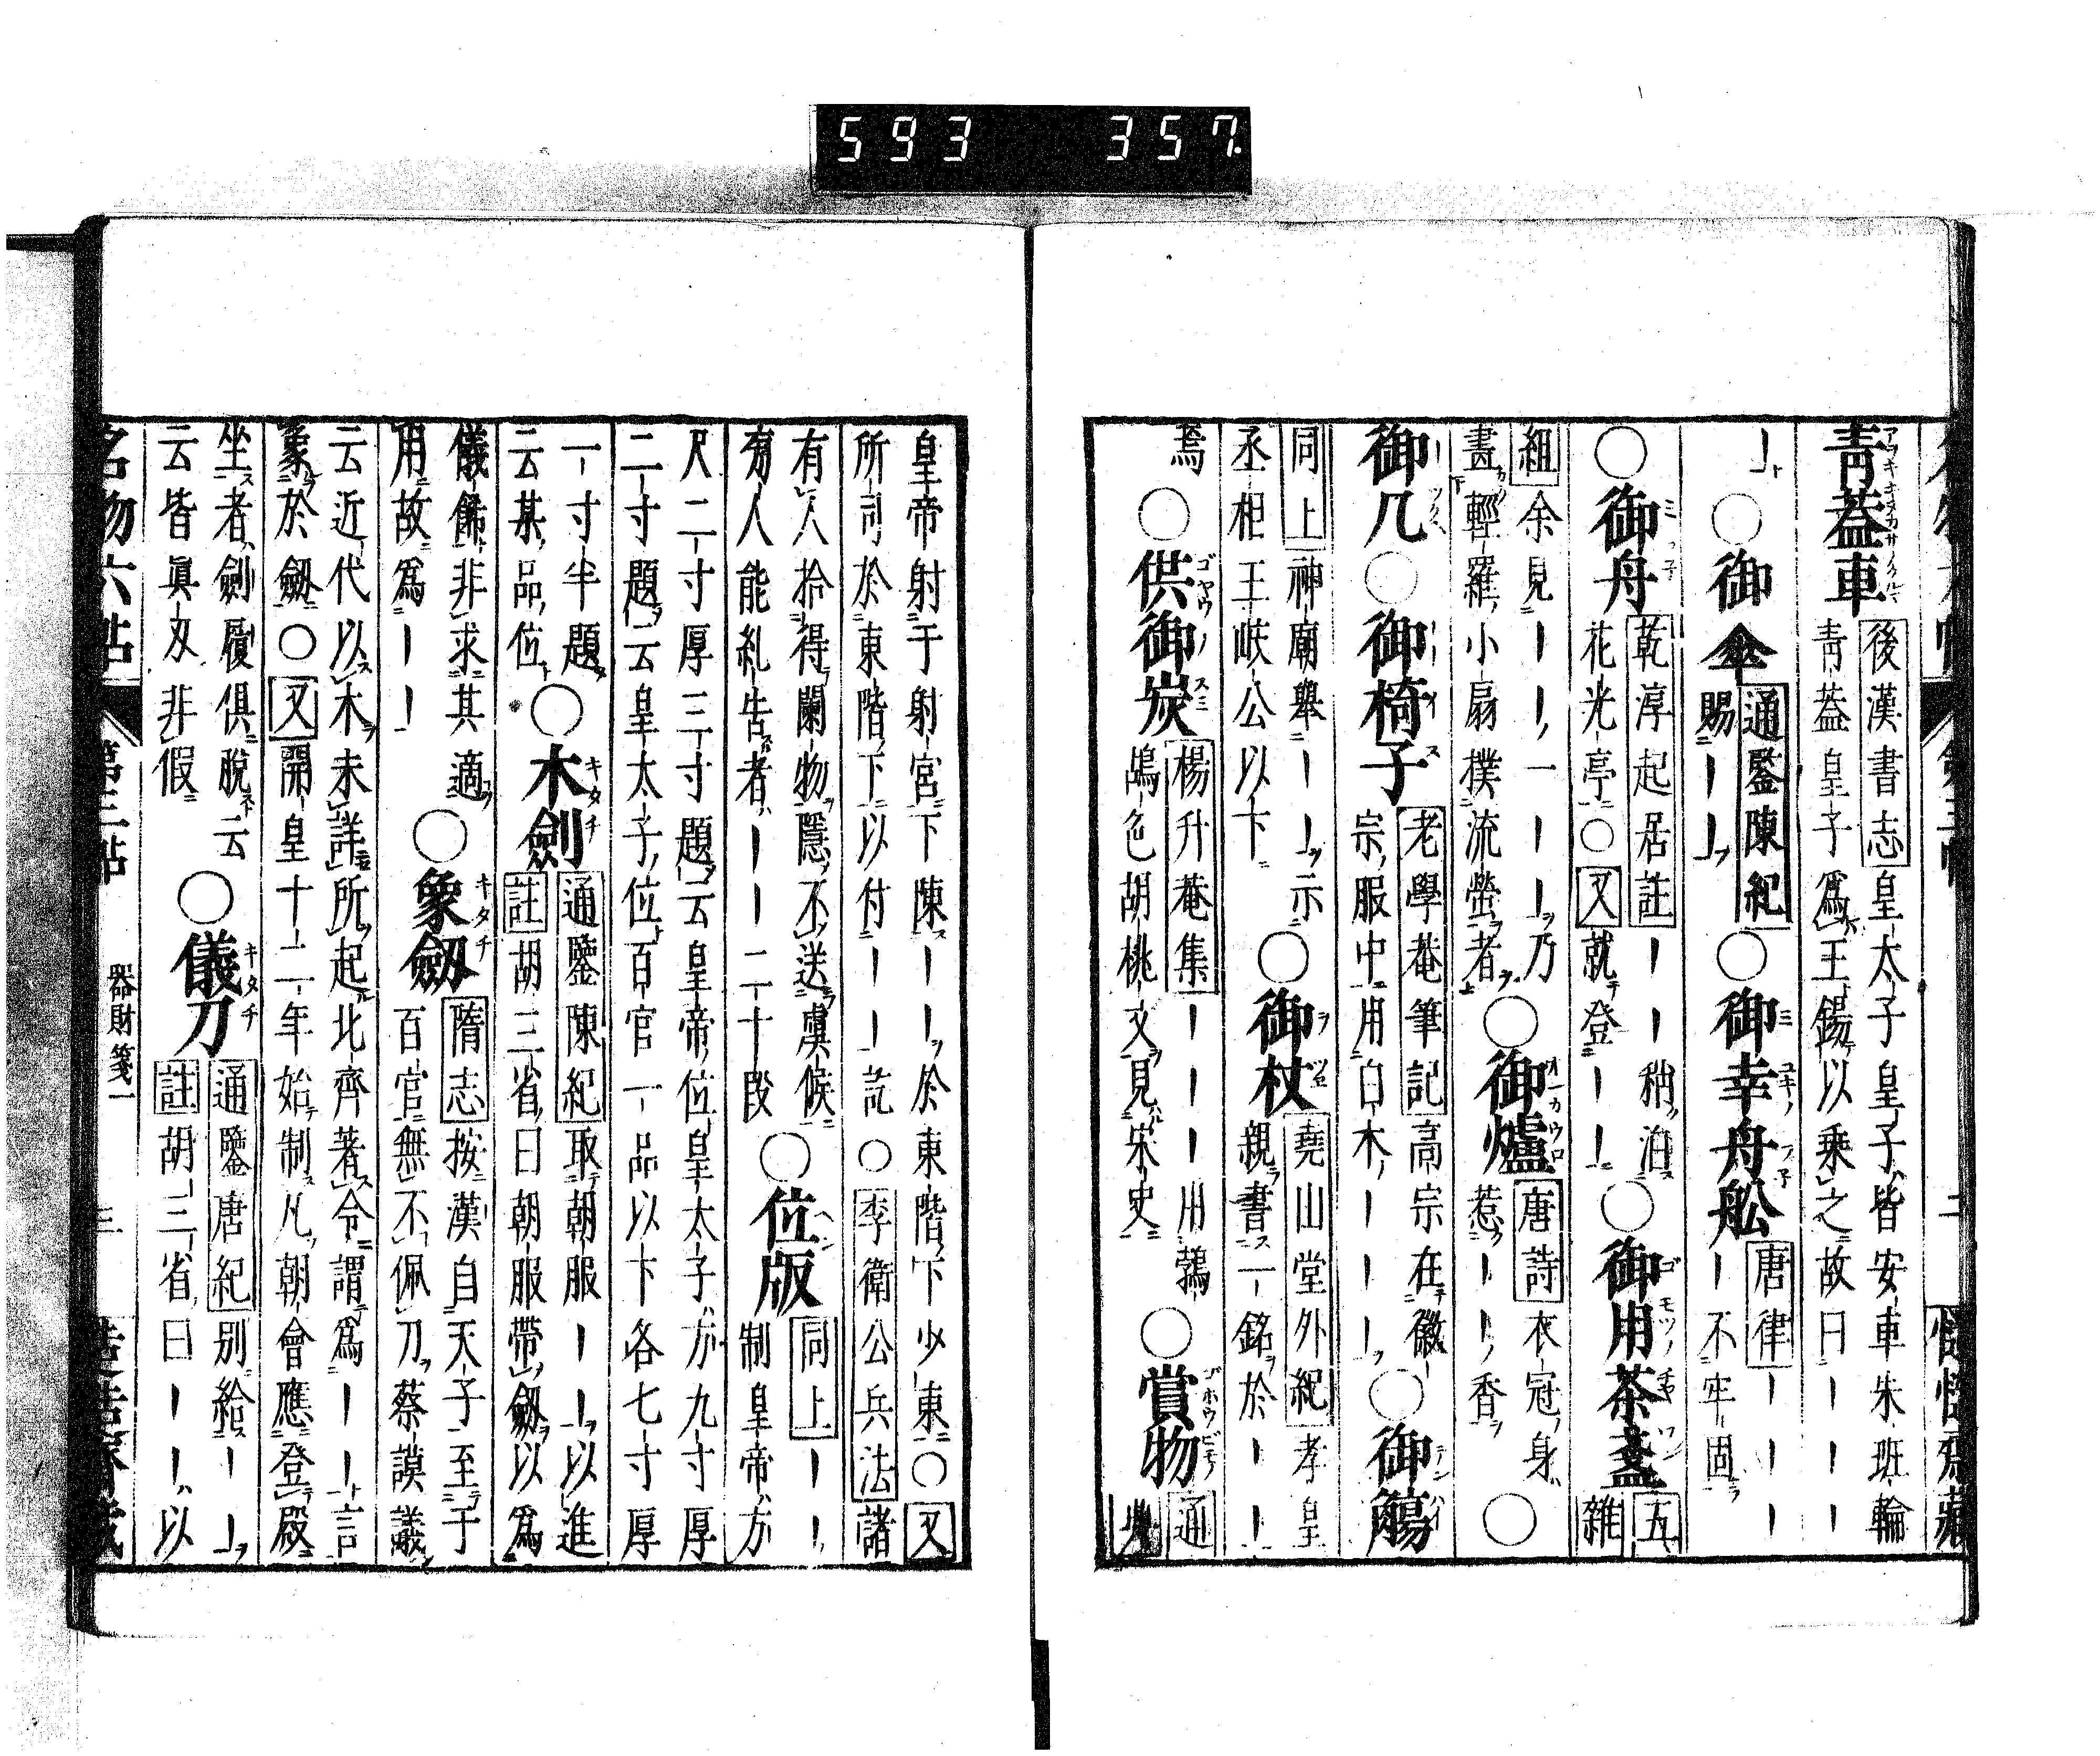 593 357.
青蓋車 後漢書志 皇太子皇子皆安車朱班輪
青蓋皇子爲王錫以乘之故曰｜｜｜
｜○御傘 通鑒陳紀 賜｜｜○御幸舟舩 唐律 ｜｜｜
｜不牢固
○御舟 乾淳起居註 ｜｜稍泊
花光亭○又就登｜｜○御用茶盞 五雜
組 余見｜｜一｜｜乃
畵輕羅小扇撲流螢者○御爐 唐詩 衣冠身
惹｜｜香○
御几○御椅子 老學菴筆記 高宗在徽
宗服中用白木｜｜｜○御觴
同上 神廟舉｜｜示
丞相王岐公以下○御杖 堯山堂外紀 孝皇
親書一銘於｜｜
焉○供御炭 楊升菴集 ｜｜｜用鶉
鴿色胡桃文見宋史○賞物 通典
皇帝射于射宮下陳｜｜於東階下少東○又
所司於東階下以付｜｜訖○李衛公兵法 諸
有人拾得闌物隱不送虞候
旁人能糺告者｜｜二十段○位版 同上 ｜｜
制皇帝方
尺二寸厚三寸題云皇帝位皇太子方九寸厚
二寸題云皇太子位百官一品以下各七寸厚
一寸半題
云某品位○木劍 通鑒陳紀 取朝服｜｜以進
註 胡三省曰朝服帶劔以爲
儀飾非求其適
用故爲｜｜○象劔 隋志 按漢自天子至于
百官無不佩刀蔡謨議
云近代以木未詳所起北齊著令謂爲｜｜言
象於劔○又開皇十二年始制凡朝會應登殿
坐者劍履俱脫云
云皆眞刃非假○儀刀 通鑒唐紀 别給｜｜
註 胡三省曰｜｜以
名物六帖 第三帖 器財箋一 三